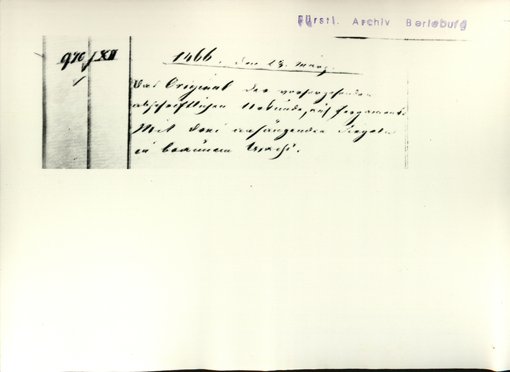 Fürstl. Archiv Berleburg
970/XII
1466. den 13. März.
Das Original der vorhergehenden
abschriftlichen Urkunde, auf Pergament.
Mit drei anhängenden Siegeln
in braunem Wachs.